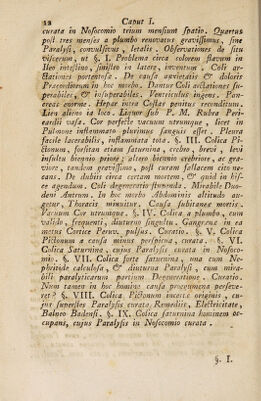 12 Caput I.
curata in Nosocomio trium mensium spatio. Quartus
post tres menses a plumbo renovatus gravissimus, sine
Paralysi, convulsivus, letalis. Observationes de situ
viscerum, ut §. I. Problema circa colorem flavum in
Ileo intestino, sinistro in latere, inventum. Coli ar-
ctationes portentosæ. De causa anxietatis & doloris
Præcordiorum in hoc morbo. Dantur Coli arctationes su-
perabiles, & insuperabiles. Ventriculus ingens. Pan-
creas enorme. Hepar intra Costas penitus reconditum.
Lien alieno in loco. Liquor sub P. M. Rubra Peri-
cardii vasa. Cor perfecte vacuum utrumque, licet in
Pulmone inflammato plurimus sanguis esset. Pleura
facile lacerabilis, inflammata tota. §. III. Colica Pi-
ctonum, forsitan etiam saturnina, crebro, brevi, levi
insultu biennio priore; altero biennio crebriore, ac gra-
viore, tandem gravissimo, post curam fallacem cito ne-
cans. De dubiis circa certam mortem, & quid in his-
ce agendum. Coli degeneratio stupenda. Mirabile Duo-
deni Antrum. In hoc morbo Abdominis altitudo au-
getur, Thoracis minuitur. Causa subitaneæ mortis.
Vacuum Cor utrumque. §. IV. Colica a plumbo, cum
valido, frequenti, diuturno singultu. Gangrænæ in ea
metus Cortice Peruv. pulsus. Curatio. §. V. Colica
Pictonum a causa minus perspicua, curata. §. VI.
Colica Saturnina, cujus Paralysis curata in Nosoco-
mio. §. VII. Colica forte saturnina, una cum Ne-
phritide calculosa, & diuturna Paralysi, cum mira-
bili paralyticarum partium Degeneratione. Curatio.
Num tamen in hoc homine causa proegumena perseve-
ret? §. VIII. Colica Pictonum ancipitis originis, cu-
jus superstes Paralysis curata, Remediis, Electricitate,
Balneo Badensi. §. IX. Colica saturnina hominem oc-
cupans, cujus Paralysis in Nosocomio curata.
§. I.